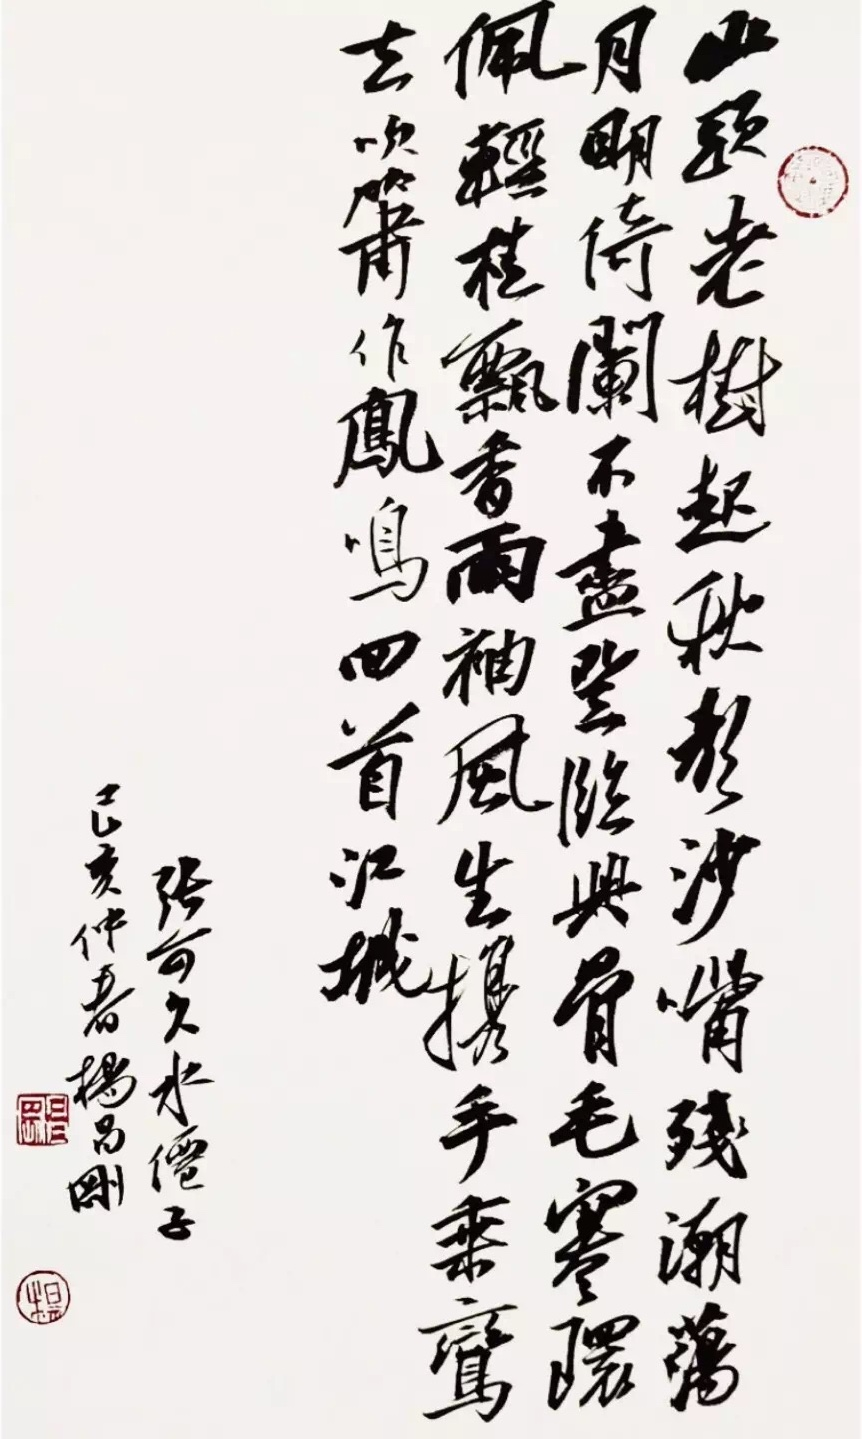 山頭老樹起秋聲沙嘴殘潮蕩
月明倚闌不盡登臨興骨毛寒環
佩輕桂飄香兩袖風生携手乘鸞
去吹簫作鳳鳴回首江城
張可久水僊子
己亥仲春楊昌剛